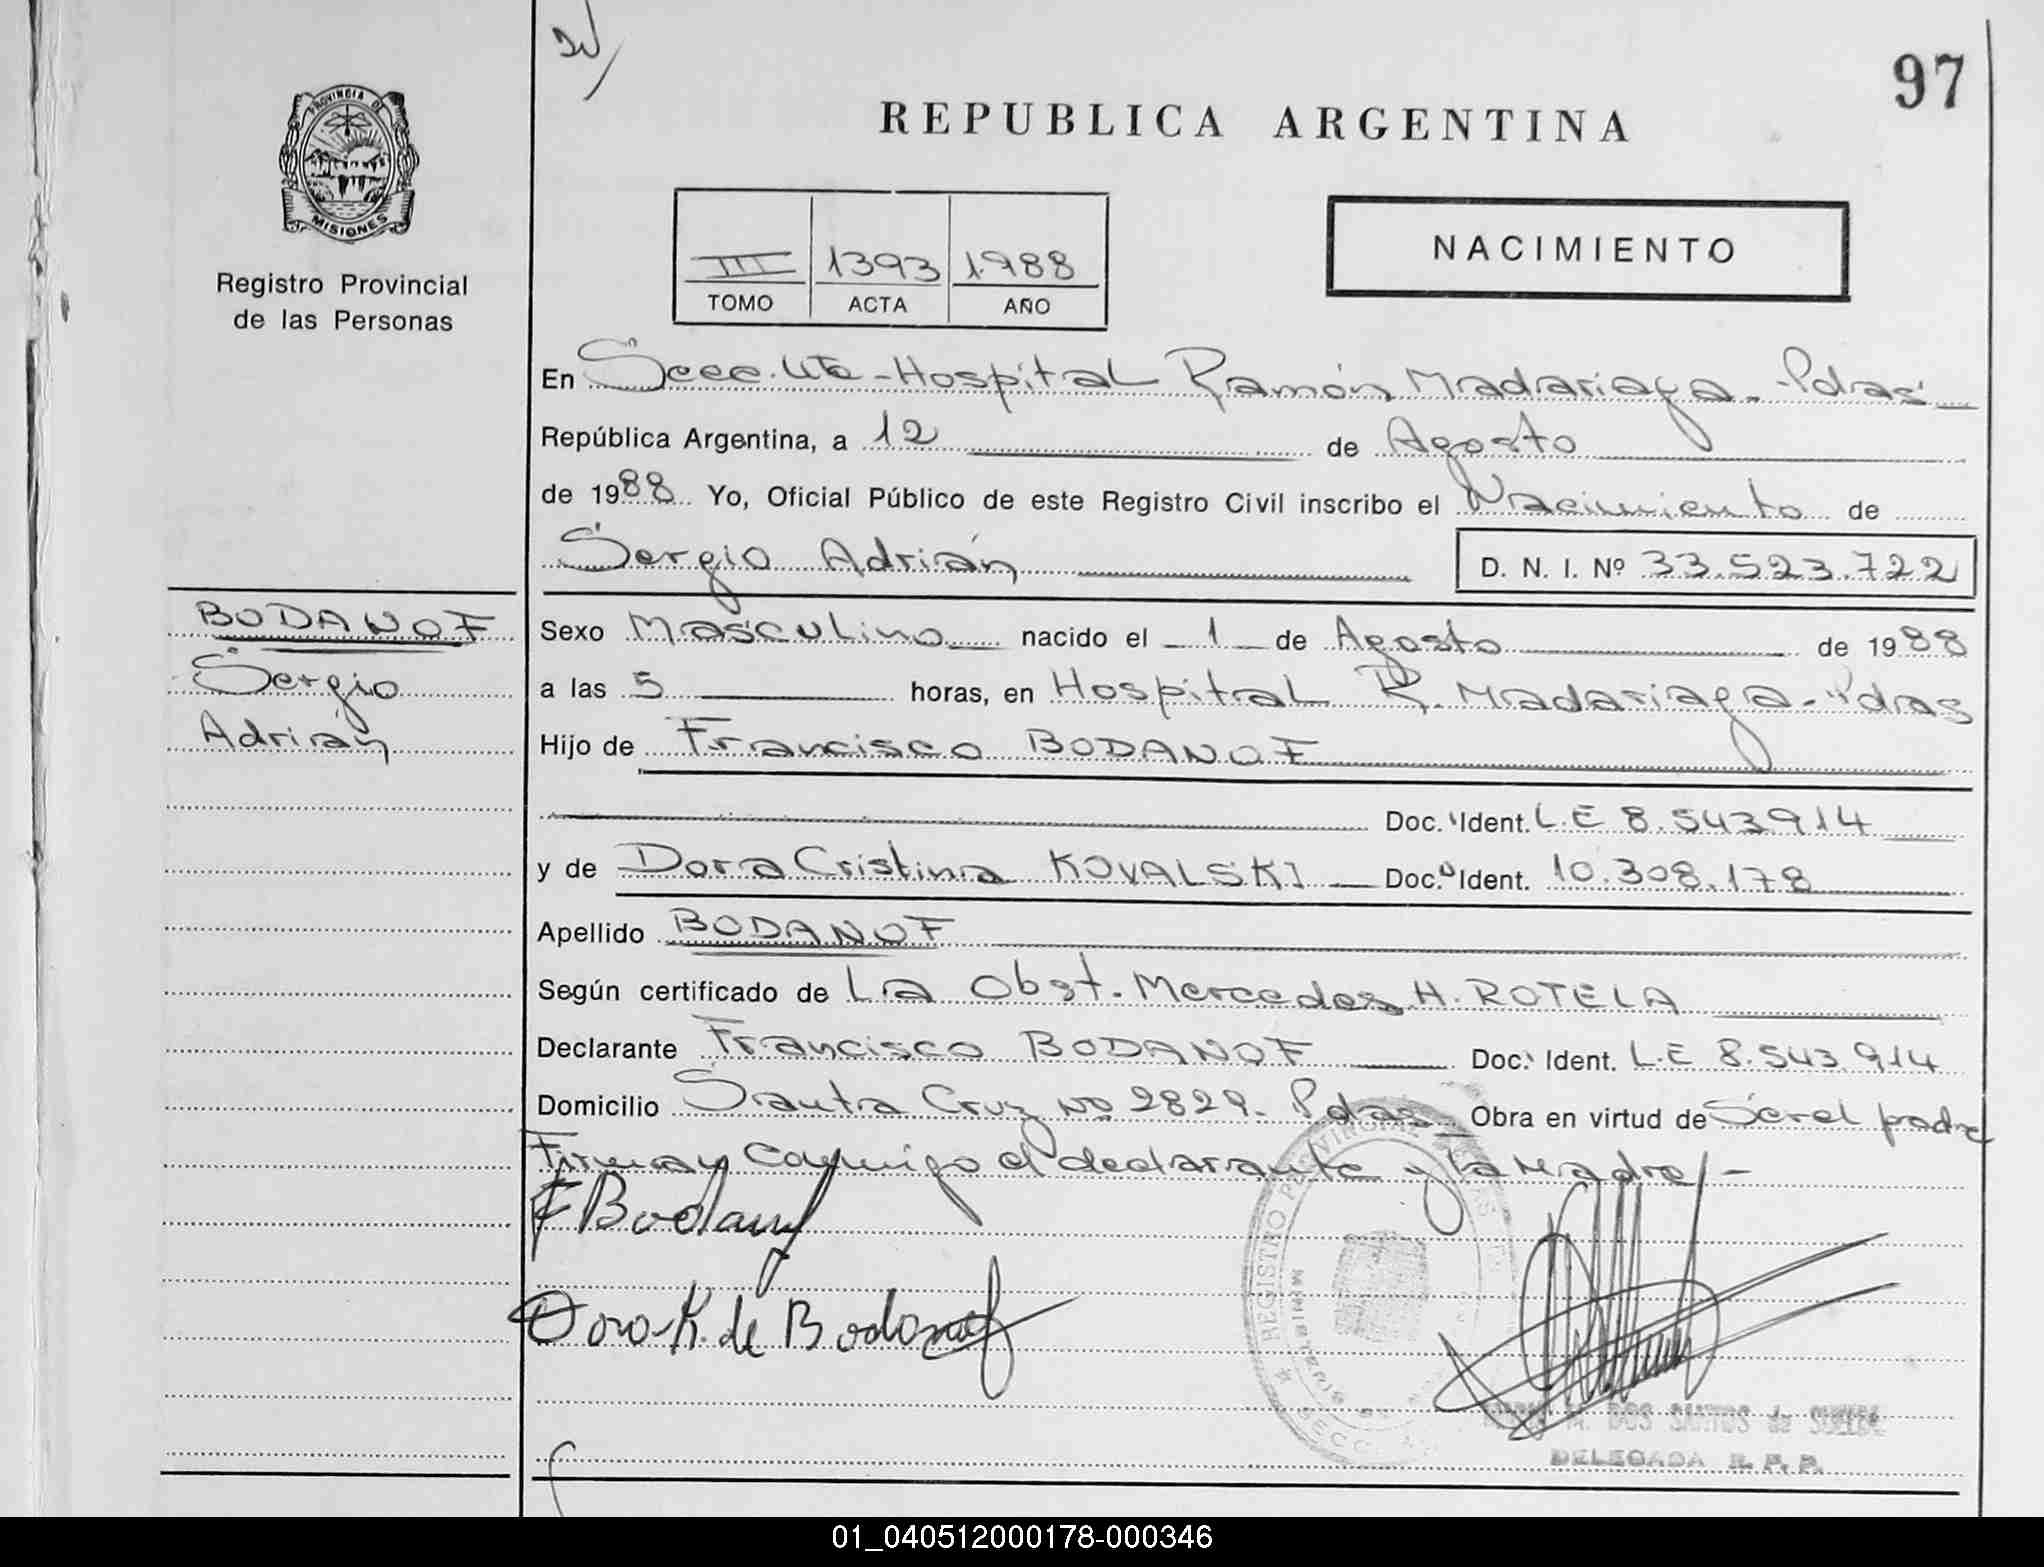 97
REPUBLICA ARGENTINA
PROVINCIA DE
MISIONES
Registro Provincial
de las Personas
NACIMIENTO
III 1393 1988
TOMO ACTA AÑO
En Secc. Hospital Ramón Madariaga - Pdas
República Argentina, a 12 de Agosto
de 1988 Yo, Oficial Público de este Registro Civil inscribo el Nacimiento de
Sergio Adrián D. N. I. Nº 33.523.722
BODANOF
Sergio
Adrián
Sexo Masculino nacido el 1 de Agosto de 1988
a las 5 horas, en Hospital R. Madariaga - Pdas
Hijo de Francisco BODANOF
Doc. Ident. L.E 8.543914
y de Dora Cristina KOVALSKI Doc. Ident. 10.308.178
Apellido BODANOF
Según certificado de La Obst. Mercedes H. ROTELA
Declarante Francisco BODANOF Doc. Ident. L.E 8.543.914
Domicilio Santa Cruz Nº 2829 - Pdas Obra en virtud de Ser el padre
Firman conmigo el declarante y la Madre/-
F Bodanof
Dora K. de Bodanof
REGISTRO PROVINCIAL
MINISTERIO
SECC.
M. DOS SANTOS de
DELEGADA R. P. P.
01_040512000178-000346